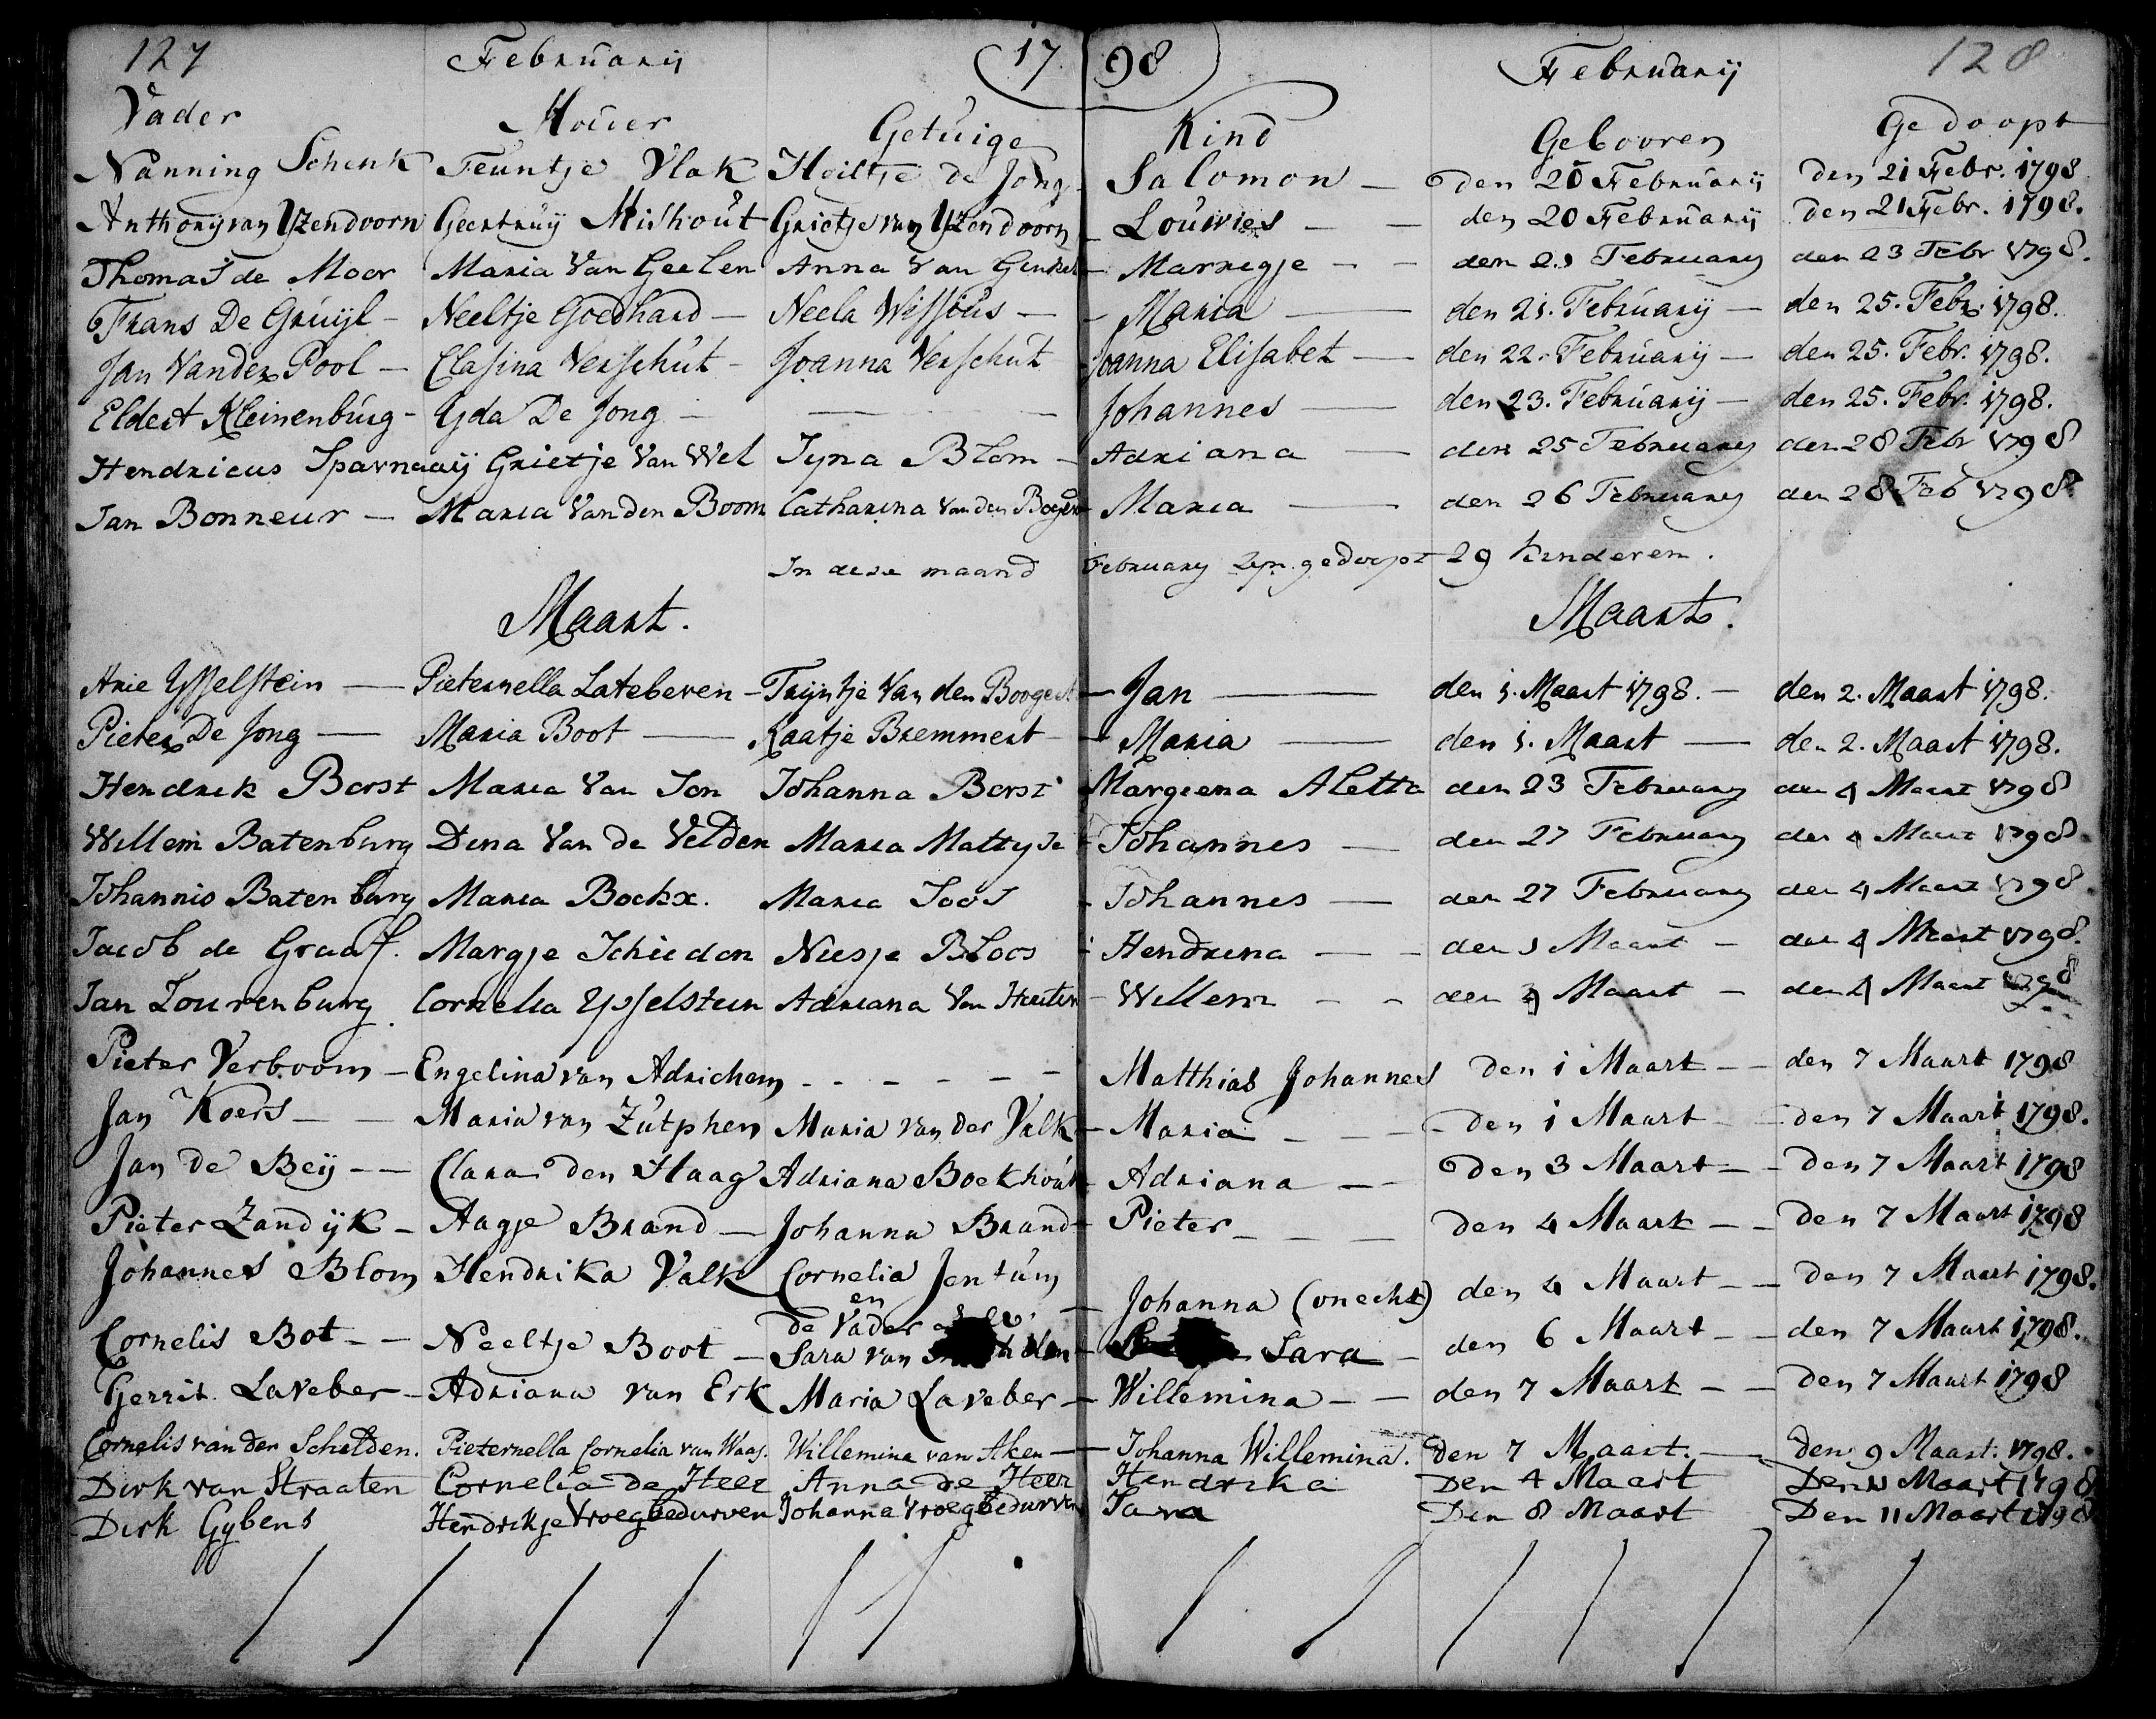 127 Februarij 17 98 Februarij 128
Vader Moeder Getuige Kind Gebooren Gedoopt
Nanning Schenk Teuntje Vlak Heiltje de Jong Salomon den 20 Februarij den 21 Febr. 1798
Anthonij van Yzendoorn Geertruij Mishout Grietje van Yzendoorn Louwies den 20 Februarij den 21 Febr. 1798.
Thomas de Moor Maria Van Geelen Anna Van Ginkel Marregje den Februarij den 23 Febr 1798.
Frans De Gruijl Neeltje Goedhard Neela Wissius Maria den 21. Februarij den 25. Febr. 1798.
Jan Vander Pool Clasina Verschut Joanna Verschut Joanna Elisabet den 22. Februarij den 25. Febr. 1798.
Eldert Kleinenburg Yda De Jong Johannes den 23. Februarij den 25. Febr. 1798.
Hendricus Sparnaaij Grietje Van Wel Syna Blom Adriana den 25 February den 28 Febr 1798
Jan Bonneur Maria Van den Boom Catharina Van den Maria den 26 February den 28 Feb 1798
In dese maand February zyn gedoopt 29 kinderen.
Maart. Maart.
Arie Ysselstein Pieternella Lateberen Tryntje Van den Boogert Jan den 1. Maart 1798. den 2. Maart 1798.
Pieter De Jong Maria Boot Kaatje Bremmert Maria den 1. Maart den 2. Maart 1798.
Hendrik Borst Maria Van Son Johanna Borst Margiena Aletta den 23 February den 4 Maart 1798
Willem Batenburg Dina Van de Velden Maria Johannes den 27 February den 4 Maart 1798
Johannis Batenburg Maria Bockx. Maria Soos Johannes den 27 February den 4 Maart 1798.
Jacob de Graaf. Margje Schiedon Niesje Bloos Hendrina den 1 Maart den 4 Maart 1798.
Jan Zourenburg Cornelia Ysselstein Adriana Van Heuten Willem den Maart den 4 Maart 1798
Pieter Verboom Engelina van Adrichem Matthias Johannes den 1 Maart den 7 Maart 1798
Jan Koers Maria van Zutphen Maria van der Valk Maria den 1 Maart den 7 Maart 1798.
Jan de Beij Clara den Haag Adriana Boekhout Adriana den 3 Maart den 7 Maart 1798
Pieter Zandijk Aagje Brand Johanna Brand Pieter den 4 Maart den 7 Maart 1798
Johannes Blom Hendrika Valk Cornelia Jentum
en
de Vader Johanna (onecht) den 4 Maart den 7 Maart 1798.
Cornelis Bot Neeltje Boot Sara van Sara den 6 Maart den 7 Maart 1798.
Gerrit Laveber Adriana van Erk Maria Laveber Willemina den 7 Maart den 7 Maart 1798
Cornelis van der Schelden. Pieternella Cornelia van Waas. Willemina van Aken Johanna Willemina. den 7 Maart. den 9 Maart. 1798.
Dirk van Straaten Cornelia de Heer Anna de Heer Hendrika Den 4 Maart Den 11 Maart 1798
Dirk Gybens Hendrikje Vroegbedurven Johanna Vroegbedurven Sara Den 8 Maart Den 11 Maart 1798